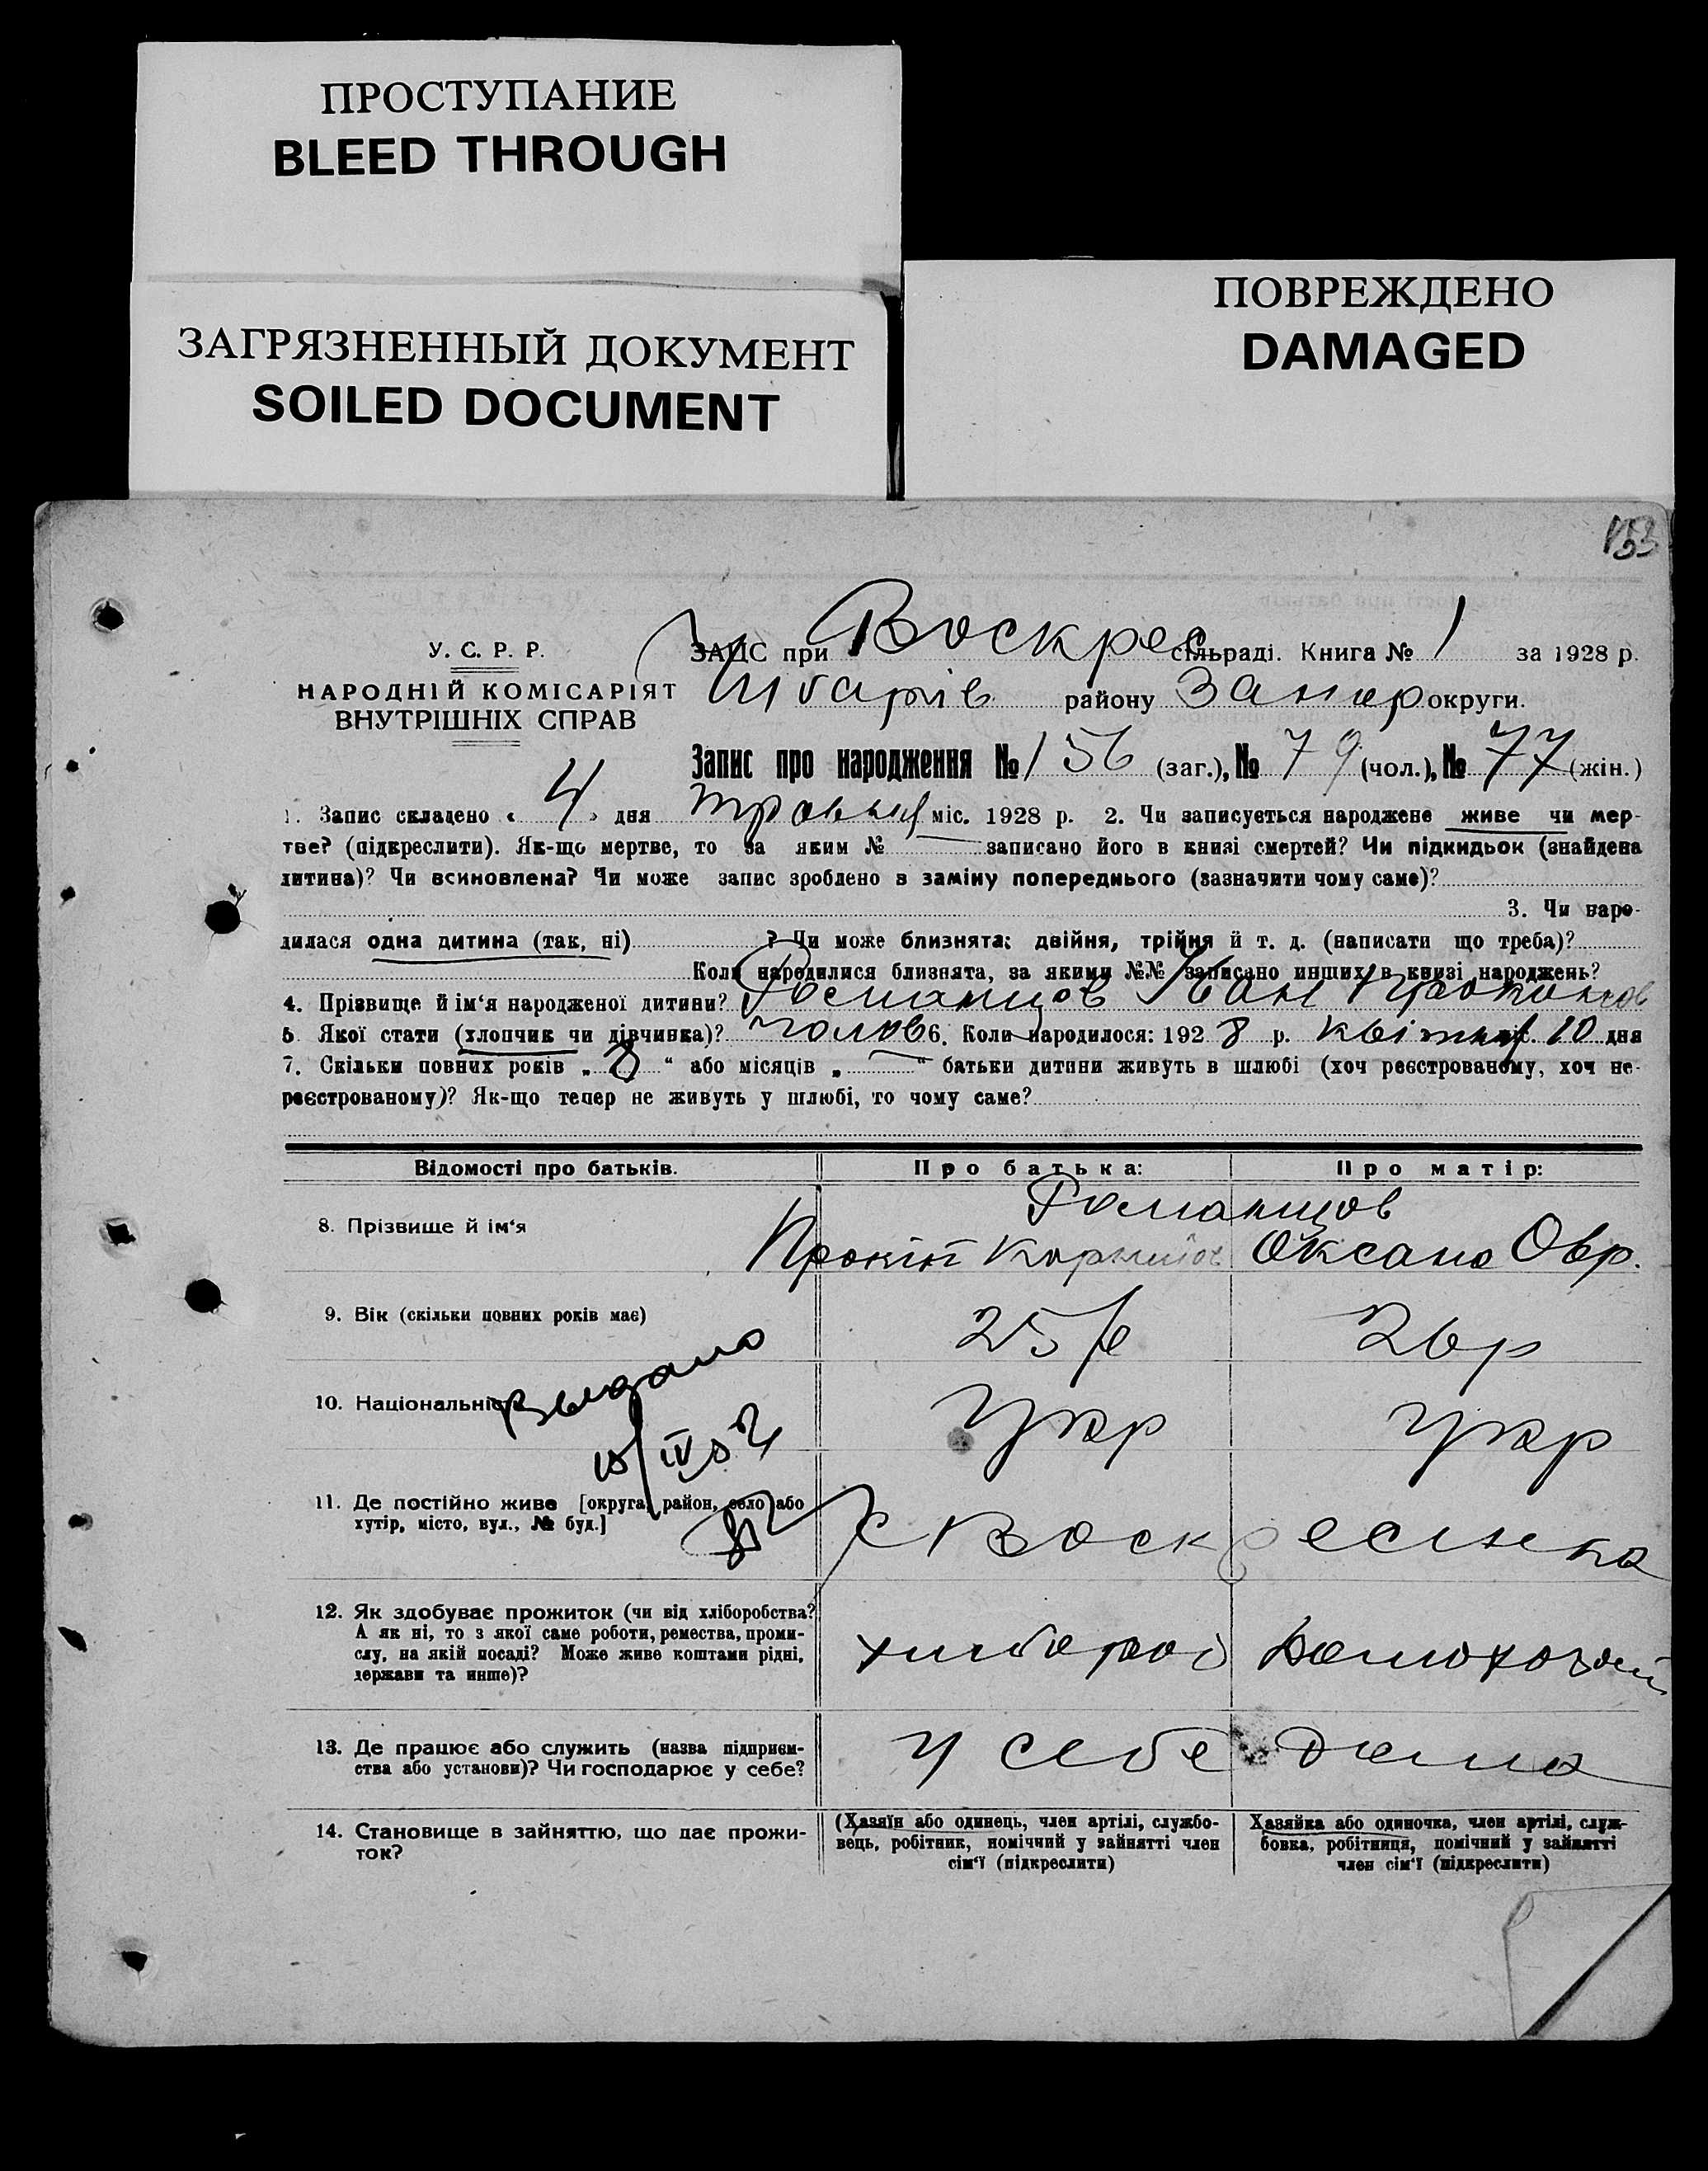 ПРОСТУПАНИЕ
BLEED THROUGH
ЗАГРЯЗНЕННЫЙ ДОКУМЕНТ
SOILED DOCUMENT
ПОВРЕЖДЕНО
DAMAGED
153
У. С. Р. Р.
НАРОДНІЙ КОМІСАРІЯТ
ВНУТРІШНІХ СПРАВ
ЗАПС при Воскрес сільраді. Книга № 1 за 1928 р.
району Запор округи.
Запис про народження № 156 (заг.), № 79 (чол.), № 77 (жін.)
1. Запис складено « 4 » дня травня міс. 1928 р. 2. Чи записується народжене живе чи мер-
тве? (підкреслити). Як-що мертве, то за яким № записано його в книзі смертей? Чи підкидьок (знайдена
дитина)? Чи всиновлена? Чи може запис зроблено в заміну попереднього (зазначити чому саме)?
3. Чи наро-
дилася одна дитина (так, ні) ? Чи може близнята: двійня, трійня й т. д. (написати що треба)?
Коли народилися близнята, за якими №№ записано инших в книзі народжень?
4. Прізвище й ім‘я народженої дитини? Романцов Іван
5 Якої стати (хлопчик чи дівчинка)? чолов 6. Коли народилося: 192 8 р. квітня міс. 10 дня
7. Скільки повних років „ 8 “ або місяців „ “ батьки дитини живуть в шлюбі (хоч реєстрованому, хоч не-
реєстрованому)? Як-що тепер не живуть у шлюбі, то чому саме?
Відомості про батьків. Про батька: Про матір:
Романцов
8. Прізвище й ім‘я Прокіп Оксана Овр.
9. Вік (скільки повних років має) 25 р 26 р
Выдано
10. Національність укр укр
15/IV 52
11. Де постійно живе [округа, район, село або
хутір, місто, вул., № буд.] с Воскресенка
12. Як здобуває прожиток (чи від хліборобства?
А як ні, то з якої саме роботи, ремества, проми-
слу, на якій посаді? Може живе коштами рідні,
держави та инше)? хлібороб домохозяй
13. Де працює або служить (назва підприєм-
ства або установи)? Чи господарює у себе? у себе дома
14. Становище в зайняттю, що дає прожи-
ток?
(Хазяїн або одинець, член артілі, службо-
вець, робітник, помічний у зайнятті член
сім‘ї (підкреслити)
Хазяйка або одиночка, член артілі, служ-
бовка, робітниця, помічний у зайнятті
член сім‘ї (підкреслити)